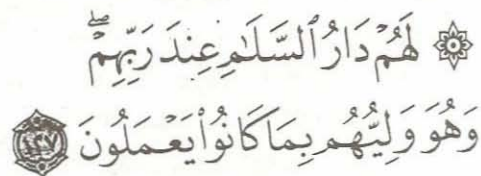 ۞ لَهُمْ دَارُ ٱلسَّلَٰمِ عِندَ رَبِّهِمْ ۖ
وَهُوَ وَلِيُّهُم بِمَا كَانُوا۟ يَعْمَلُونَ ١٢٧